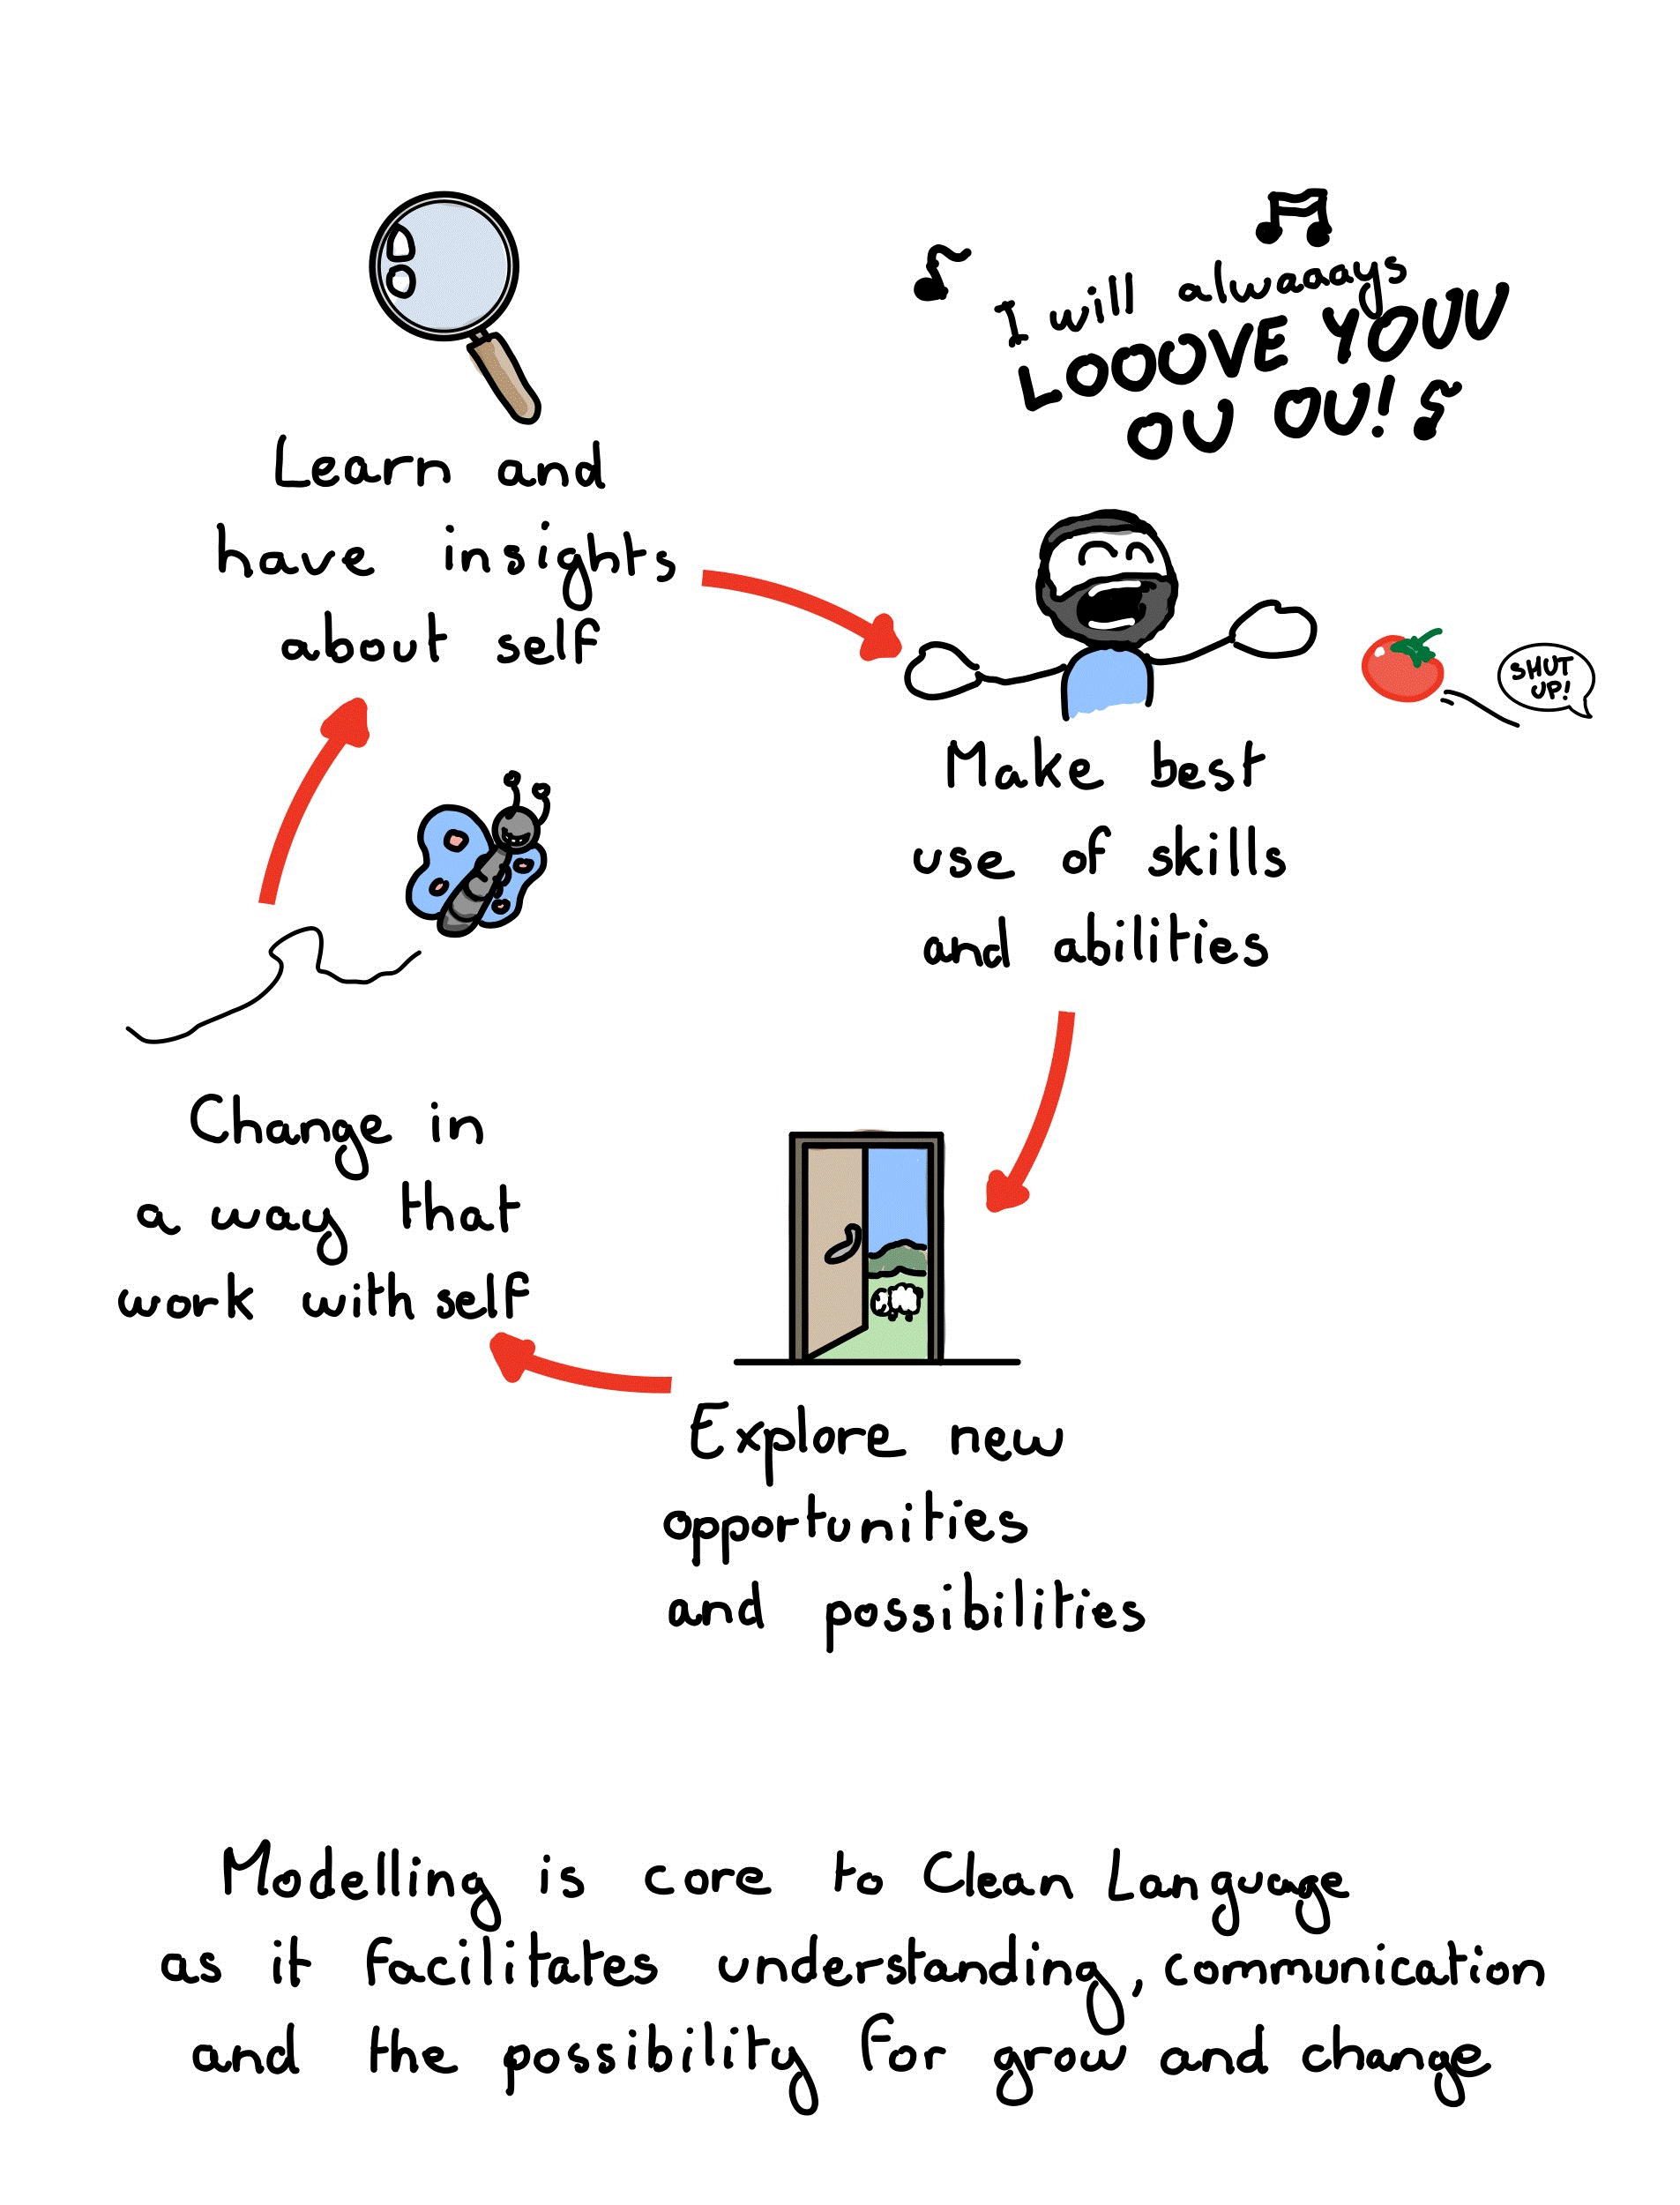 I will alwaaays
LOOOVE YOUU
OU OU!
Learn and
have insights
about self
SHUT
UP!
Make best
use of skills
and abilities
Change in
a way that
work with self
Explore new
opportunities
and possibilities
Modelling is core to Clean Language
as it facilitates understanding, communication
and the possibility for grow and change